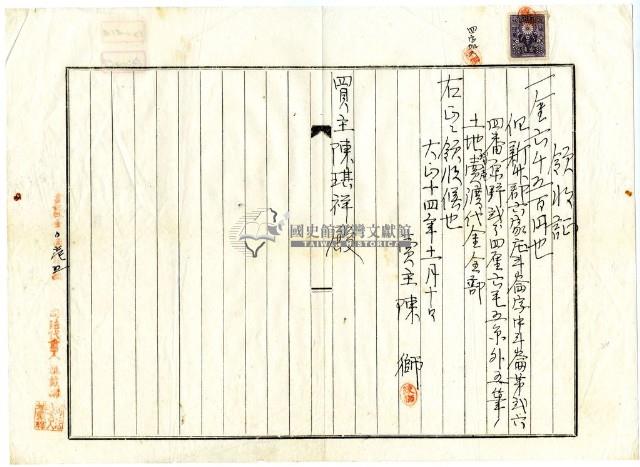 領收証
一金六千五百円也
但新竹郡六家庄斗崙字中斗崙第弐六
四番原野弐分四厘六毛五糸外五筆
土地賣渡代金全部
右正ニ領收候也
大正十四年十一月十日
賣主陳 獅
買主陳琪祥殿
國史館臺灣文獻館
TAIWAN HISTORICA